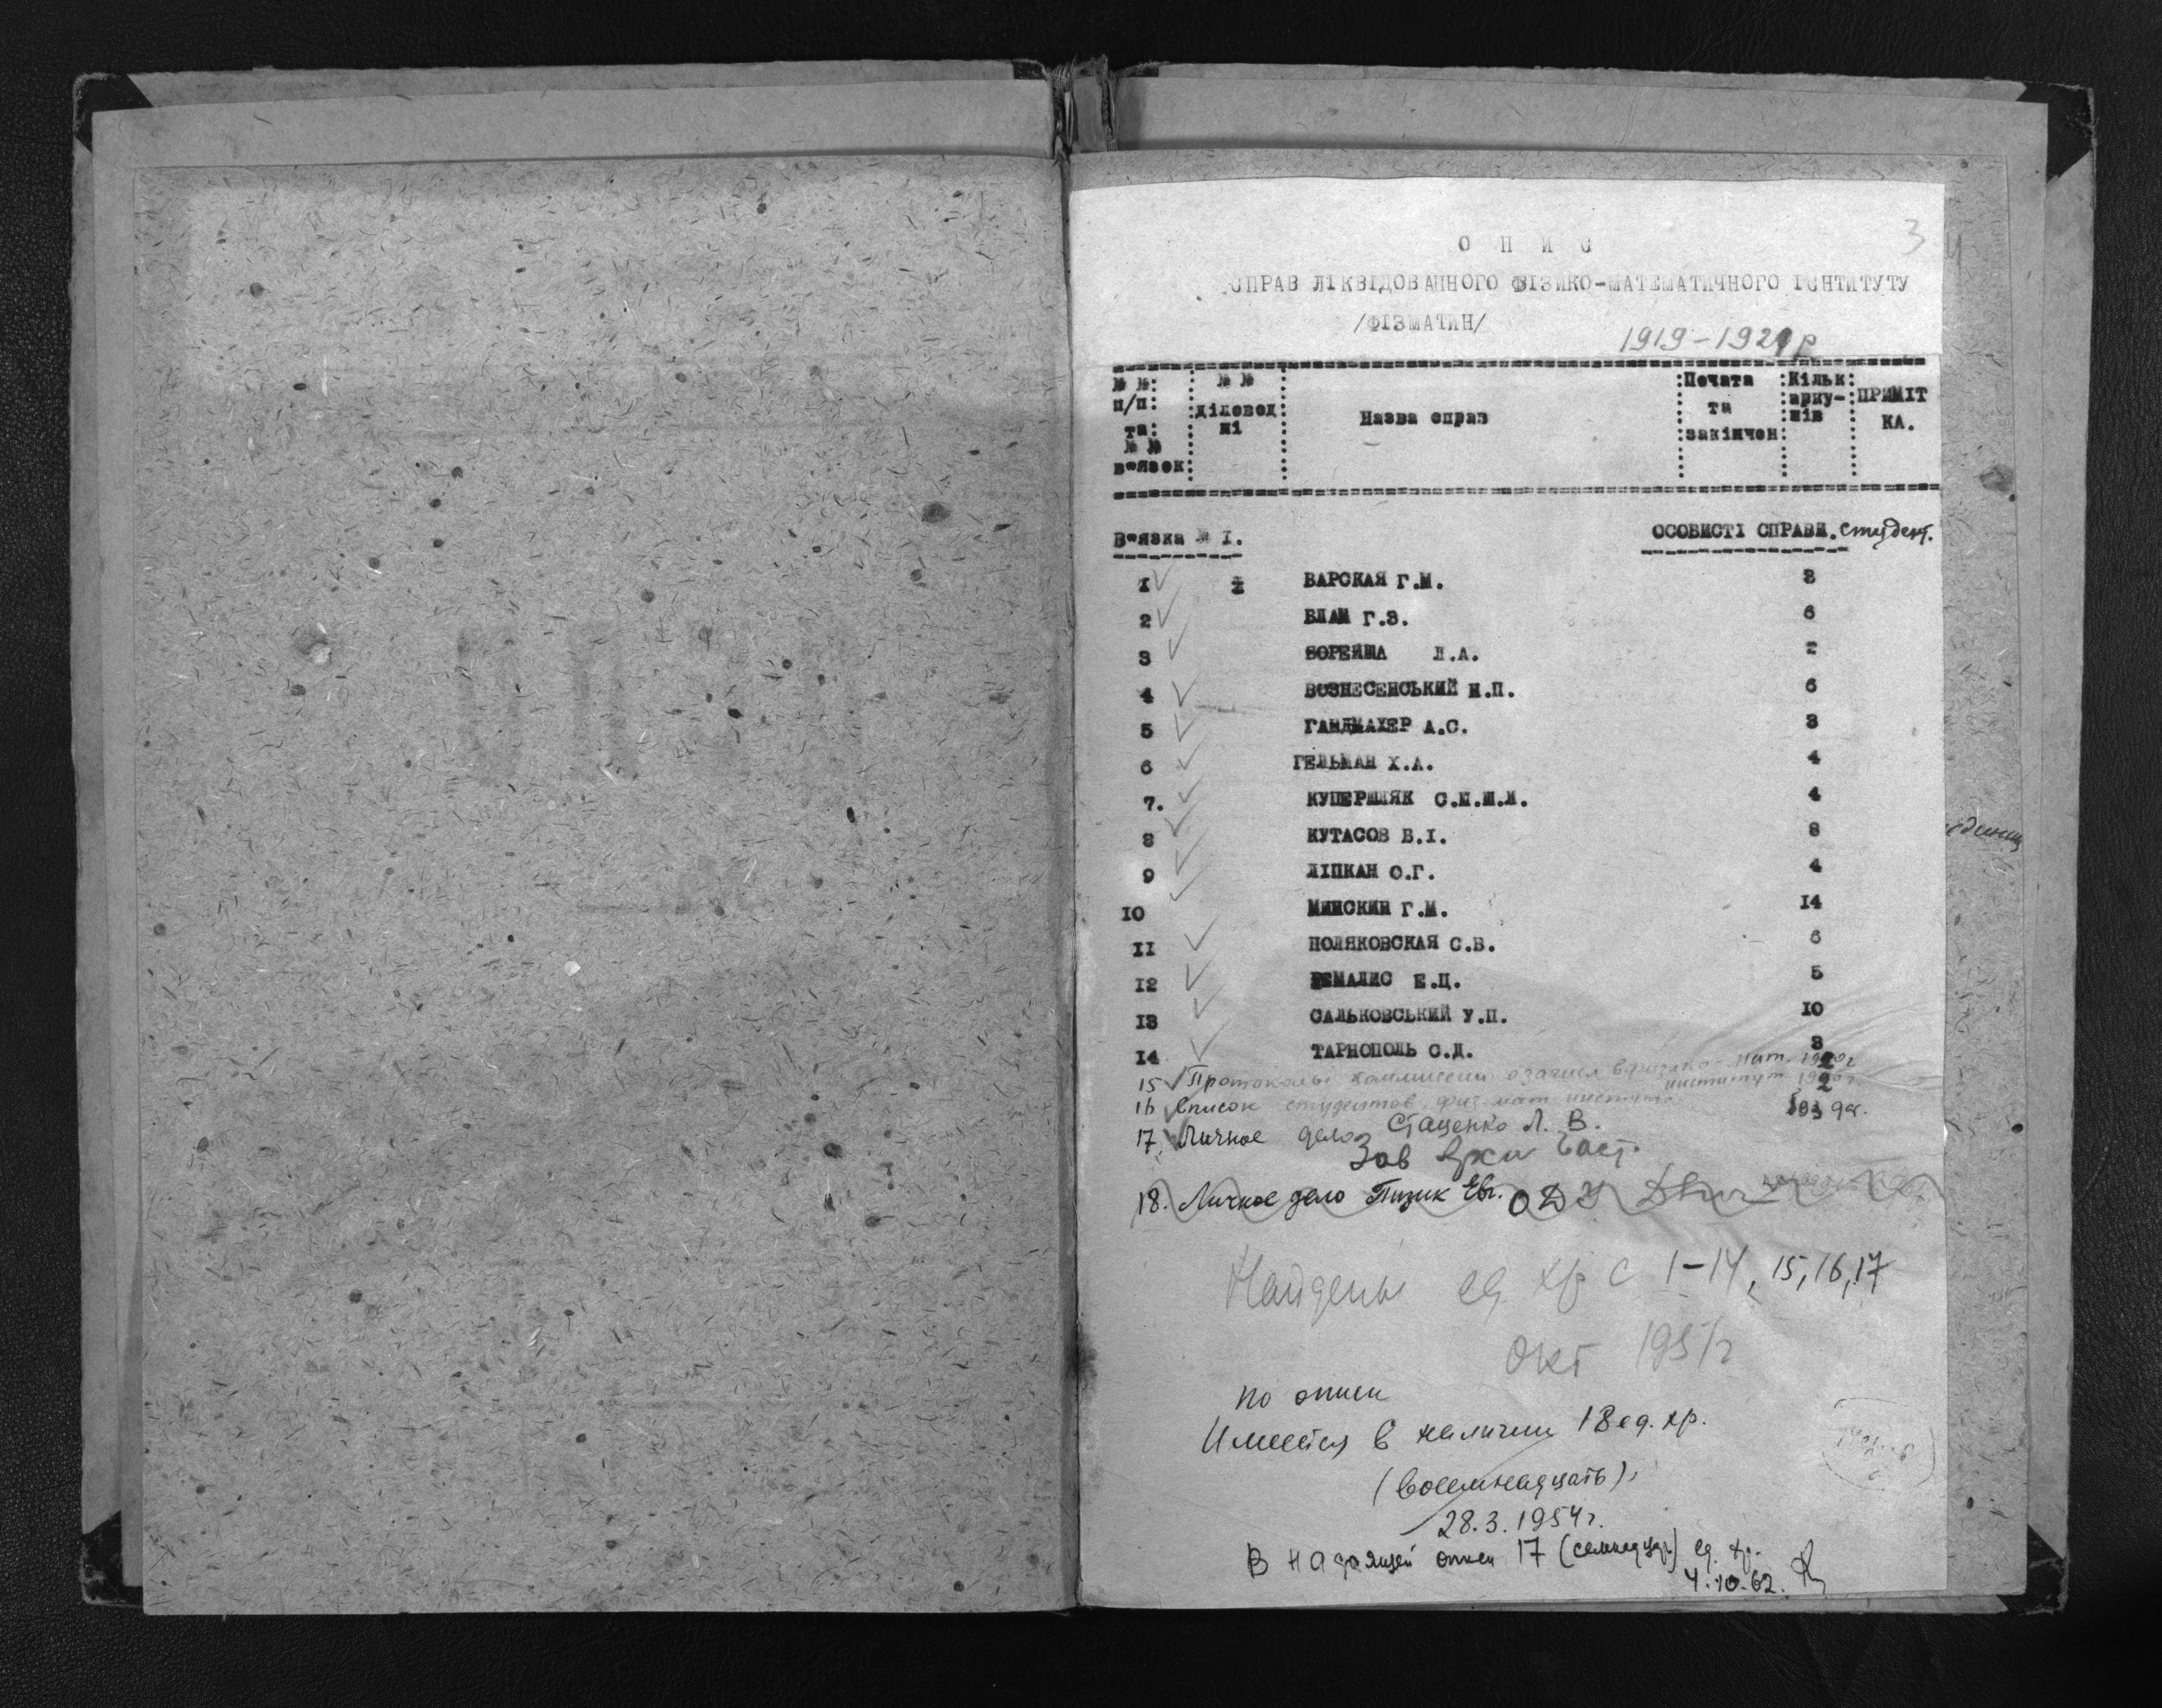 3 4
О П И С
СПРАВ ЛІКВІДОВАННОГО ФІЗИКО-МАТЕМАТИЧНОГО ІСНТИТУТУ
/ФІЗМАТИН/
1919-1921р
№ №: п/п: та: № № в"язок:
№ № діловод ні
Назва справ
Початa та закінчен:
Кільк: арку- шів
ПРИМІТ КА.
В"язка № I.
ОСОБИСТІ СПРАВИ. студент.
1 1 БАРСКАЯ Г.М. 3
2 БЛАМ Г.З. 6
3 БОРЕЙША Л.А. 2
4 ВОЗНЕСЕНСЬКИЙ И.П. 6
5 ГАНДМАХЕР А.С. 3
6 ГЕЛЬМАН Х.А. 4
7. КУПЕРШЛЯК С.М.Ш.М. 4
8 КУТАСОВ В.І. 8
9 ЛІПКАН О.Г. 4
10 МИНСКИН Г.М. 14
11 ПОЛЯКОВСКАЯ С.В. 6
12 РЕМАЛИС Е.Ц. 5
13 САЛЬКОВСЬКИЙ У.П. 10
14 ТАРНОПОЛЬ С.Д. 3
15 Протоколы коммисеии о зачисл в физико-мат. 1920г 2
институт 1920г. 2
16 Список студентов физ-мат института
17. Личное дело Стаценко Л. В.
Зав
18. Личное дело Пизик Евг. ОДУ
Найдены ед хр с 1-14, 15, 16, 17
Окт 1951г
по описи
Имеется в наличии 18 ед. хр.
(восемнадцать).
28.3.1954г.
В настоящей описи 17 (семнадцать) ед. хр.
4.10.62.